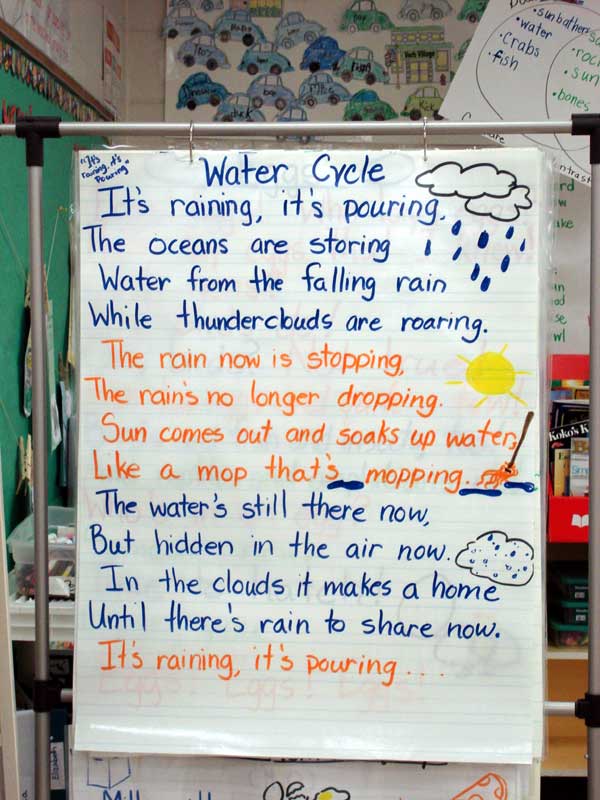 "It's
raining, it's
pouring"
Water Cycle
It's raining, it's pouring,
The oceans are storing
Water from the falling rain
While thunderclouds are roaring.
The rain now is stopping,
The rain's no longer dropping.
Sun comes out and soaks up water,
Like a mop that's mopping.
The water's still there now,
But hidden in the air now.
In the clouds it makes a home
Until there's rain to share now.
It's raining, it's pouring...
Eggs! Eggs! Eggs!
•sunbather
•water
•Crabs
•fish
•sun
•bones
Koko's K